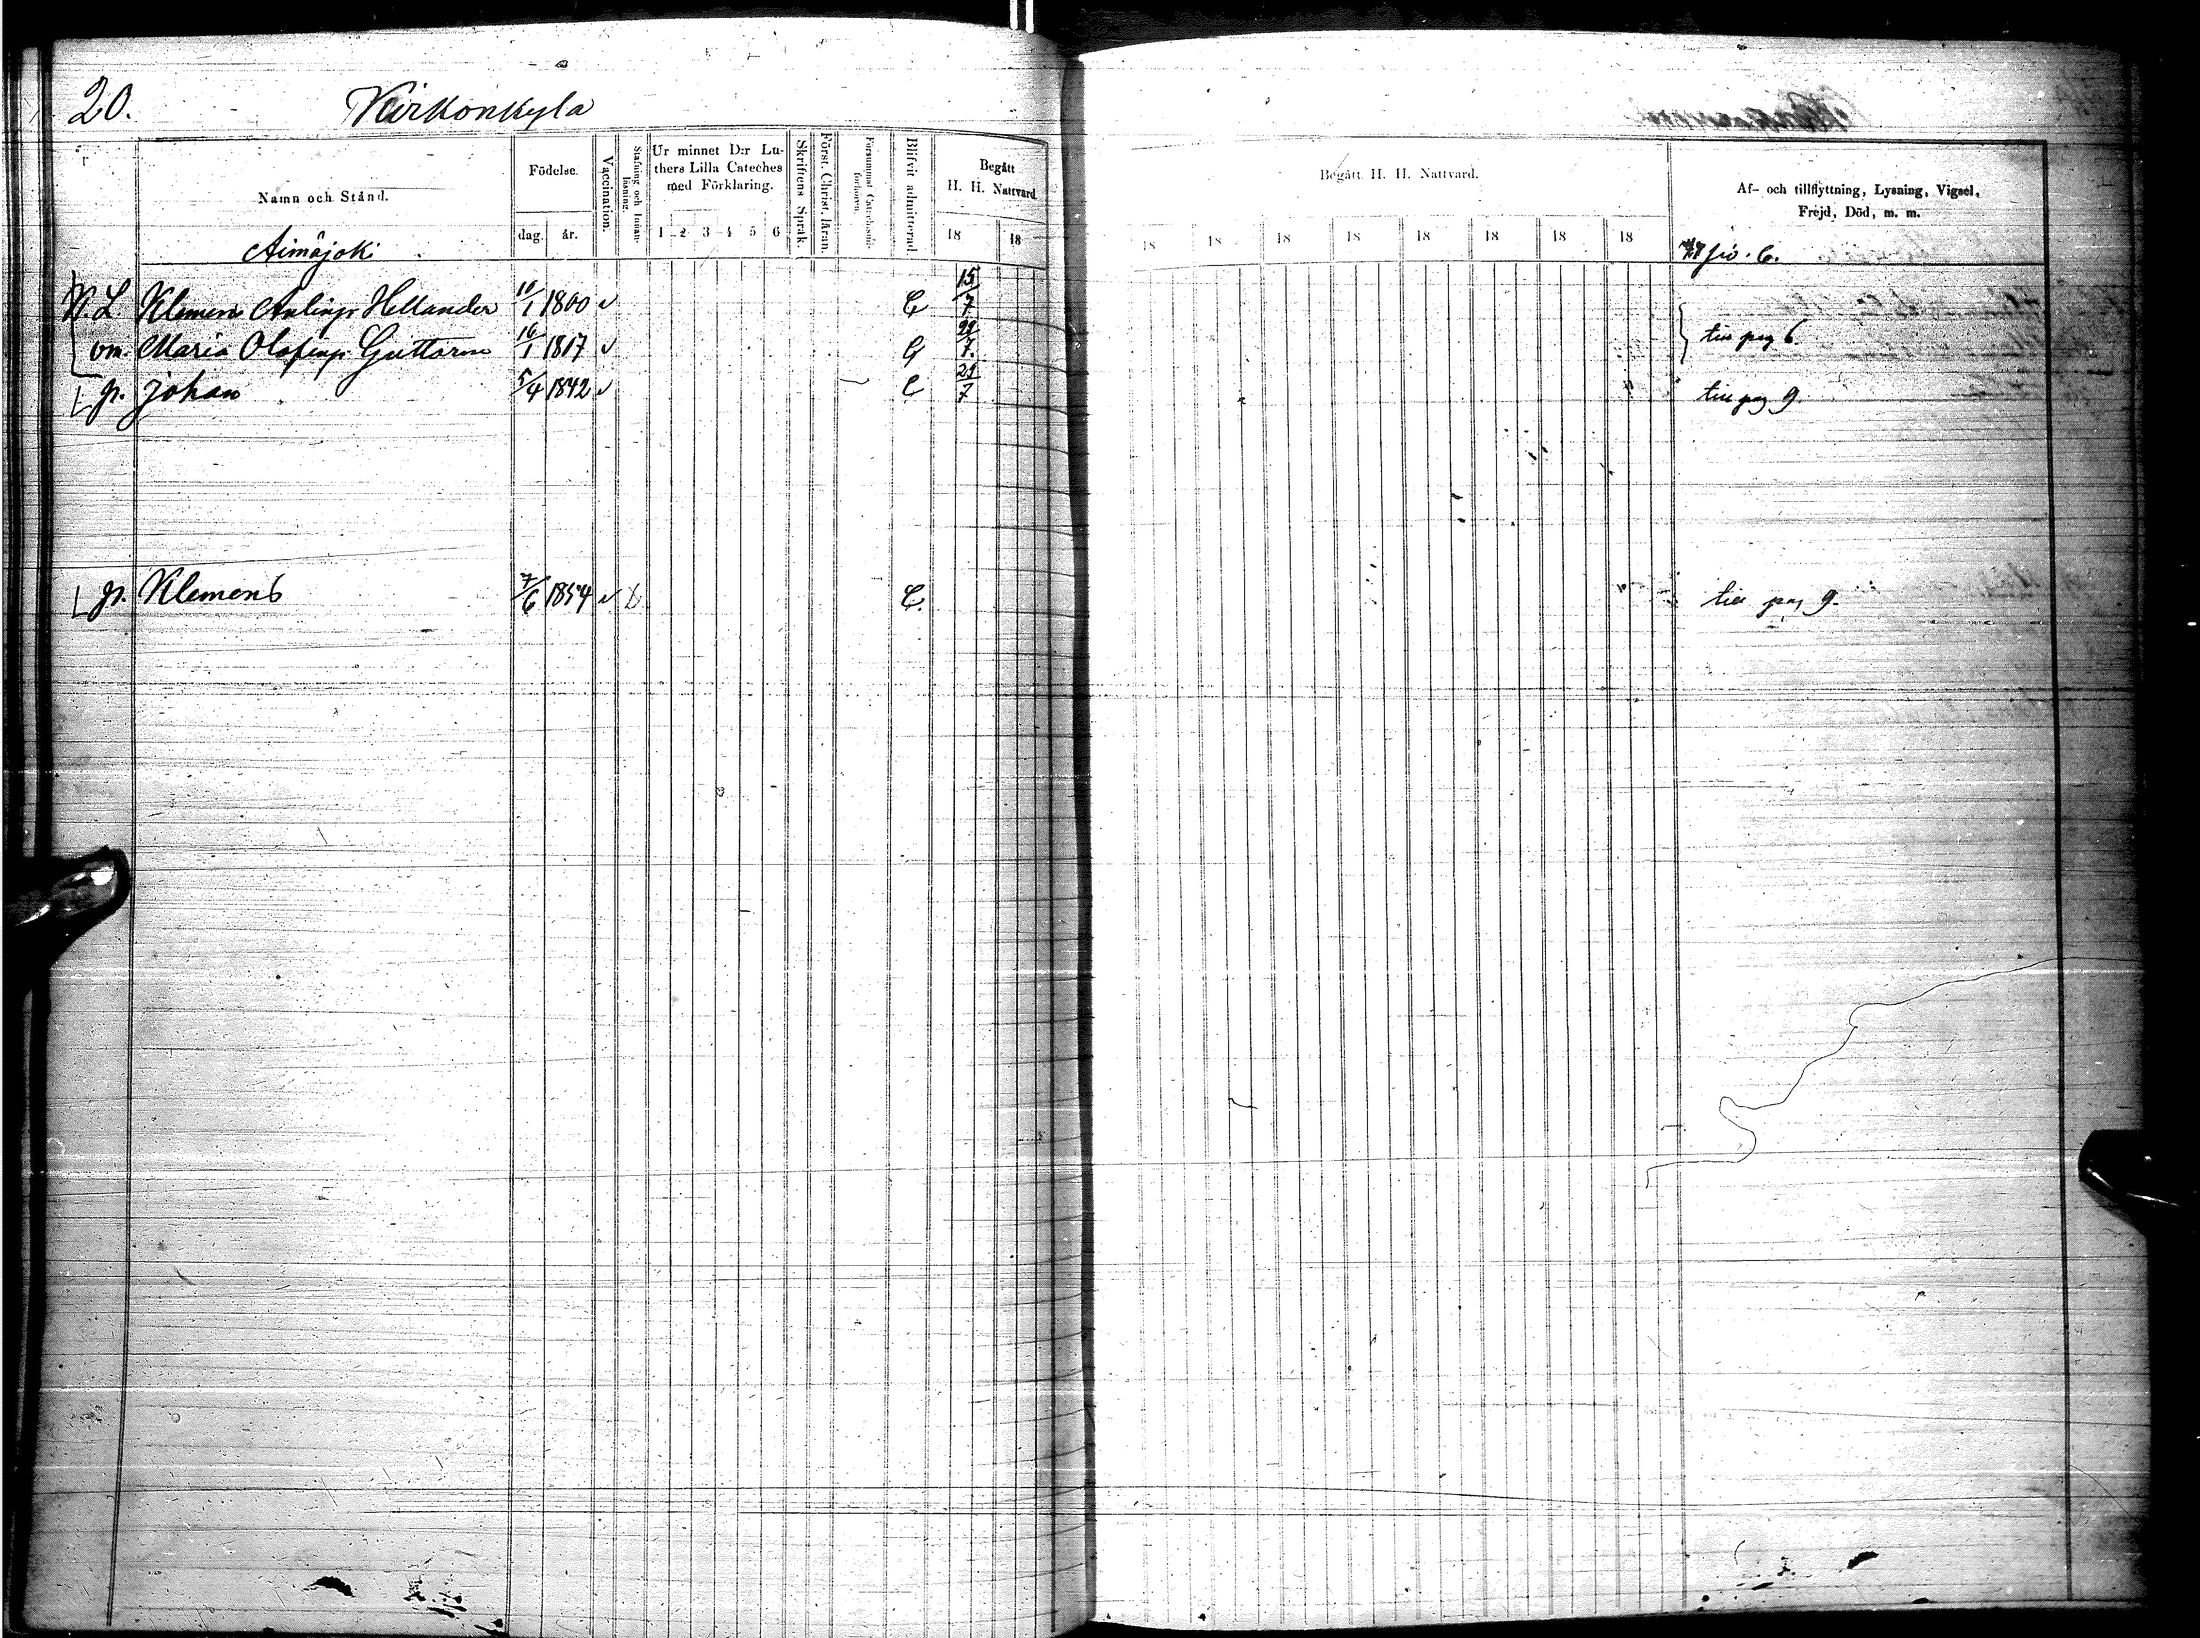 20.
Kirkonkyla
Namn och Stånd.
Födelse.
dag. år.
Vaccination.
Stafning och Innanläsning.
Ur minnet D:r Luthers Lilla Cateches med Förklaring.
1 2 3 4 5 6
Skriftens Språk.
Först. Christ. läran.
Försummat Catechismiförhören.
Blifvit admitterad.
Begått H. H. Nattvard
18 18
Begått H. H. Nattvard.
18 18 18 18 18 18 18 18
Af- och tillflyttning, Lysning, Vigsel, Frejd, Död, m. m.
Aimäjoki
N. L. Klemens Hellander 10/1 1800 v C 15/7
om. Maria Guttorm 16/1 1817 v C 29/7 till pag 6.
p. Johan 5/4 1842 v C 29/7 till pag 9.
p. Klemens 7/6 1854 v b C. till pag 9.